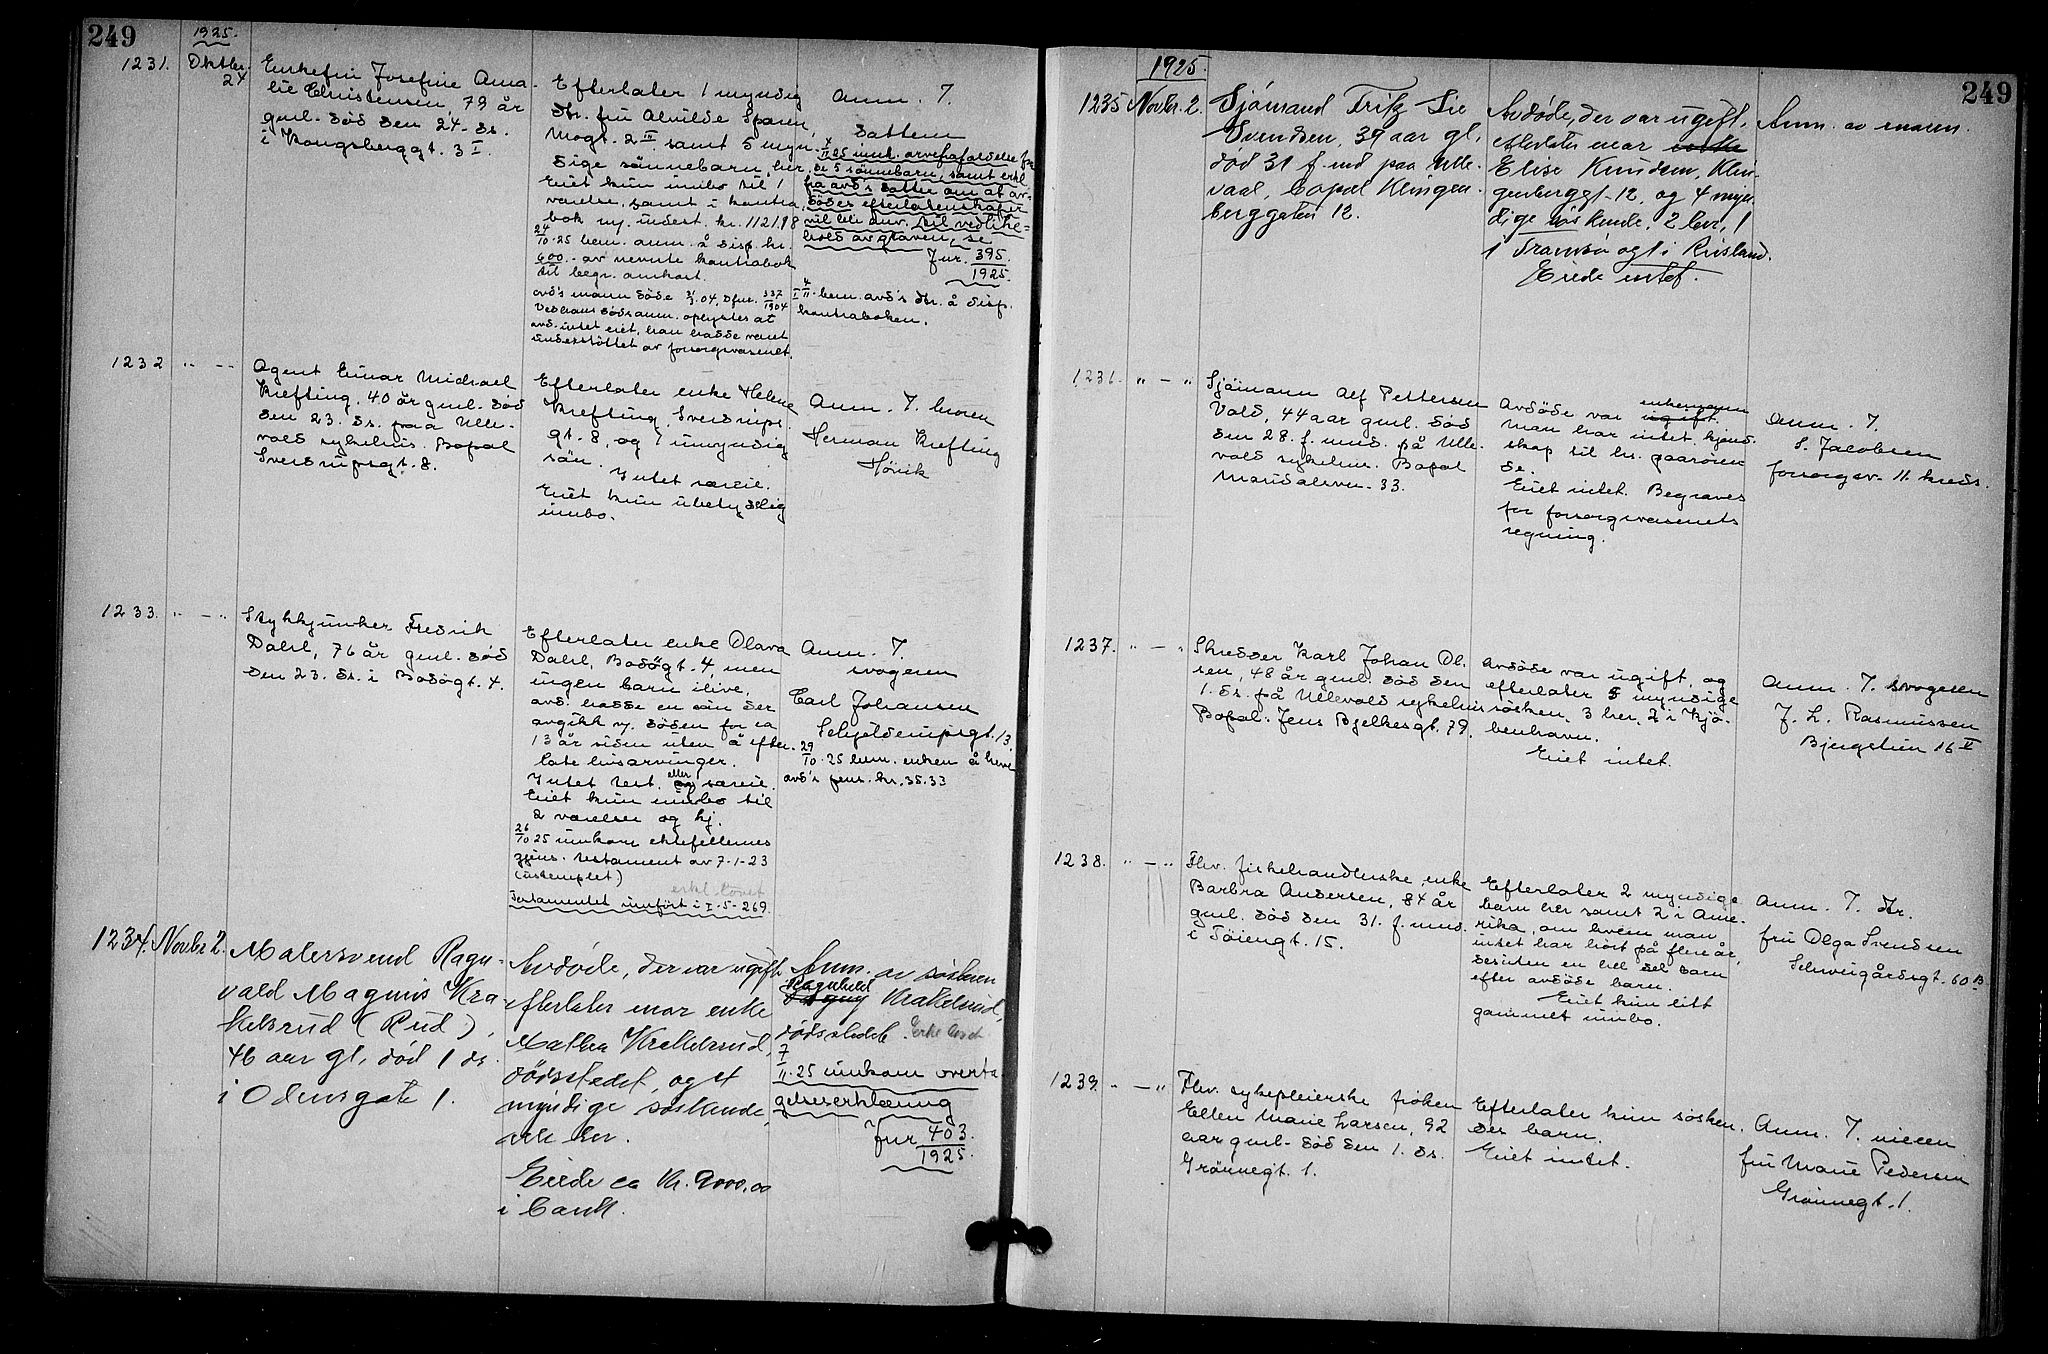 249
1925.
1231.
Oktbr.
24
Enkefru Josefine Ama-
lie Christensen, 79 år
gml. död den 24. ds.
i Kongsberggt. 3 I
Efterlater 1 myndig
dtr. fru Alvilde
Mogt. 2 III samt 5 myn-
dige sønnebarn, her.
Eiet kun innbo til 1
værelse, samt i kontra-
bok ny. innest. kr. 1121,98
24/10-25 bem. anm. å disp. kr.
600.- av nevnte kontrabok
til begr. omkost.
avd's mann döde 31/3.04, Dfnr. 337/1904
Ved hans dödsanm. oplystes at
avd. intet eiet, han hadde vært
understöttet av forsorgsvesenet.
Anm. T.
datteren
4/II 25 innk. arvefrafaldelse fra
de 5 sönnebarn, samt erkl.
fra avd's datter om at av-
dödes efterlatenskaper
vil bli anv. til vedlike-
hold av graven, se
Jnr. 395/1925.
4/II bem. avd's dtr. å disp.
kontraboken.
1232 " - -
Agent Einar Michael
Krefting, 40 år gml. död
den 23. ds. paa Ulle-
vold sykehus. Bopæl
Sverdrupsgt. 8.
Efterlater enke Helene
Krefting, Sverdrups-
gt. 8, og 1 umyndig
sön.
Intet særeie.
Eiet kun ubetydelig
innbo.
Anm. T. broren
Herman Krefting
Hövik
1233. " - "
Stykkjunker Fredrik
Dahl, 76 år gml. död
den 23. ds. i Bodögt. 4.
Efterlater enke Olava
Dahl, Bodögt. 4, men
ingen barn ilive.
avd. hadde en sön der
avgikk v. döden for ca
13 år siden uten å efter-
late livsarvinger.
Intet test. eller og særeie.
Eiet kun innbo til
2 værelser og kj.
26/10 25 innkom ektefellenes
gjens. testament av 7-1-23
(ustemplet)
erkl. lovet
Testamentet innfört i I-5-269.
Anm. T.
svogeren
Carl Johansen
Schjolderupsgt. 13.
29/10-25 bem. enken å heve
avd's pens. kr. 35.33
1234. Novbr 2.
Malersvend Ragn-
vald Magnus Kra-
kelsrud (Rud),
46 aar gl., död 1 ds
i Odensgate 1.
Avdöde, der var ugift
efterlater mor enke
Mathea Krakelsrud,
dödsstedet, og et
myndige söskende,
alle her.
Eiede ca Kr. 9000,00
i bank.
Anm. av sösteren
Ragnhild
Krakelsrud,
dödsstedet.
7/11-25 innkom overta-
gelseserklæring
Jnr 403/1925.
249
1925.
1235 Novbr. 2.
Sjömand Fritz Lie
Svendsen, 39 aar gl.,
död 31 f. md paa Ulle-
vaal, bopæl Klingen-
berggaten 12.
Avdöde, der var ugift,
efterlater mor enke
Elise Knudsen, Klin-
genberggt. 12, og 4 myn-
dige söskende, 2 her, 1
i Tromsö og 1 i Rusland.
Eiede intet.
Anm. av moren.
1236. " - "
Sjömann Alf Pettersen
Vold, 44 aar gml. död
den 28. f. mnd. på Ulle-
vold sykehus. Bopæl
Maridalsvn. 33.
Avdöde var enkemann ugift.
Man har intet kjend-
skap til hs. paarören-
de.
Eiet intet. Begraves
for forsorgsvesenets
regning.
Anm. T.
S. Jacobsen
forsorgsv. 11. kreds.
1237. " - "
Skredder Karl Johan Ol-
sen, 48 år gml. död den
1. ds. på Ullevold sykehus
Bopæl: Jens Bjelkesgt. 79.
Avdöde var ugift, og
efterlater 5 myndige
søsken, 3 her, 2 i Kjö-
benhavn.
Eiet intet.
Anm. T. svogeren
J. L. Rasmussen
Bjergstien 16 V
1238. " - "
Fhv. fiskehandlerske, enke
Barbra Andersen, 84 år
gml. död den 31. f. mnd.
i Töiengt. 15.
Efterlater 2 myndige
barn her samt 2 i Ame-
rika, om hvem man
intet har hört på flere år,
desuten en hel del barn
efter avdöde barn.
Eiet kun litt
gammelt innbo.
Anm. T. dtr.
fru Olga Svendsen
Schweigårdsgt. 60 B
1239. " - "
Fhv. sykepleierske fröken
Ellen Marie Larsen, 92
aar gml. död den 1. ds.
Grönnegt. 1.
Efterlater kun sösken-
der barn.
Eiet intet.
Anm. T. niecen
fru Marie Pedersen
Grönnegt. 1.